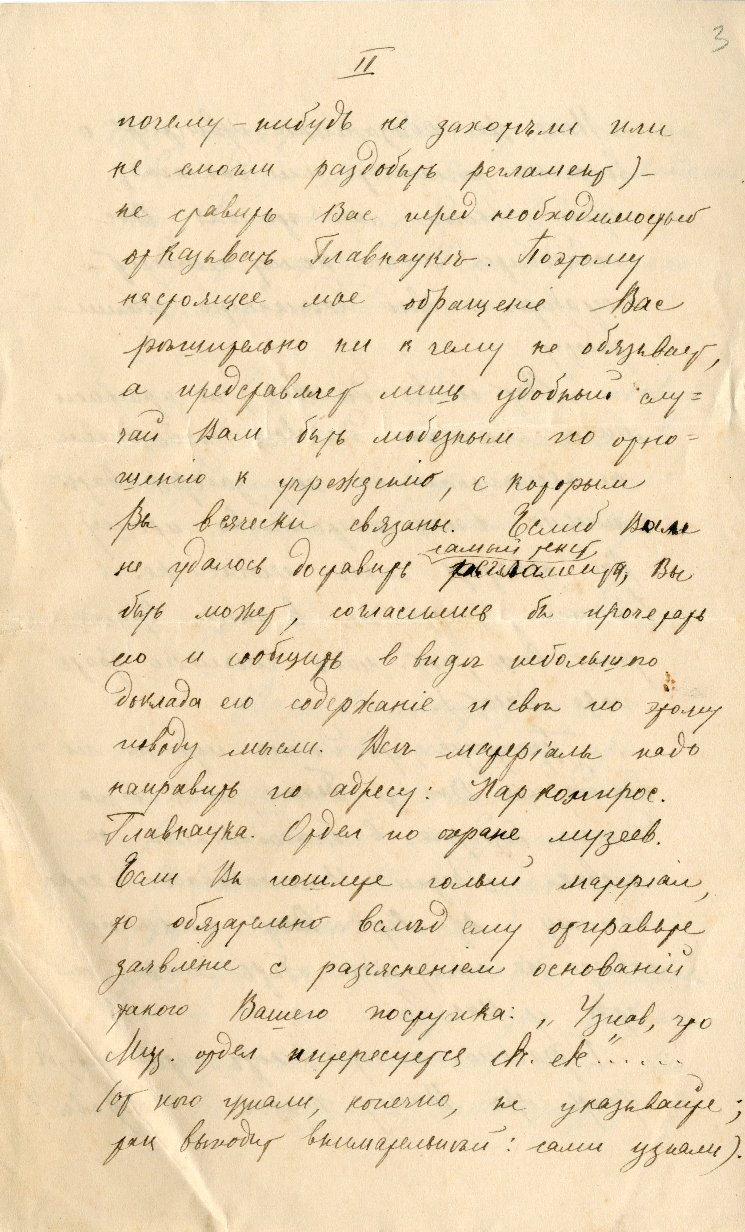 3
II
почему-нибудь не захотѣли или
не смогли раздобыть регламент) –
не ставить Вас перед необходимостью
отказывать Главнаукѣ. Поэтому
настоящее мое обращенiе Вас
рѣшительно ни к чему не обязывает,
а представляет лишь удобный слу=
чай Вам быть любезным по отно=
шенiю к учрежденiю, с которым
Вы всячески связаны. Если б Вам
самый текст
не удалось доставить регламента, Вы
быть может, согласились бы прочитать
его и сообщить в видѣ небольшого
доклада его содержанiе и свои по этому
поводу мысли. Всѣ матерiалы надо
направить по адресу: Наркомпрос.
Главнаука. Отдел по охране музеев.
Если Вы пошлете голый матерiал,
то обязательно вслѣд ему отправьте
заявленiе с разъясненiем основанiй
такого Вашего поступка: „Узнав, что
Муз. отдел интересуется ......
(от кого узнали, конечно, не указывайте;
так выходит внимательней: сами узнали).